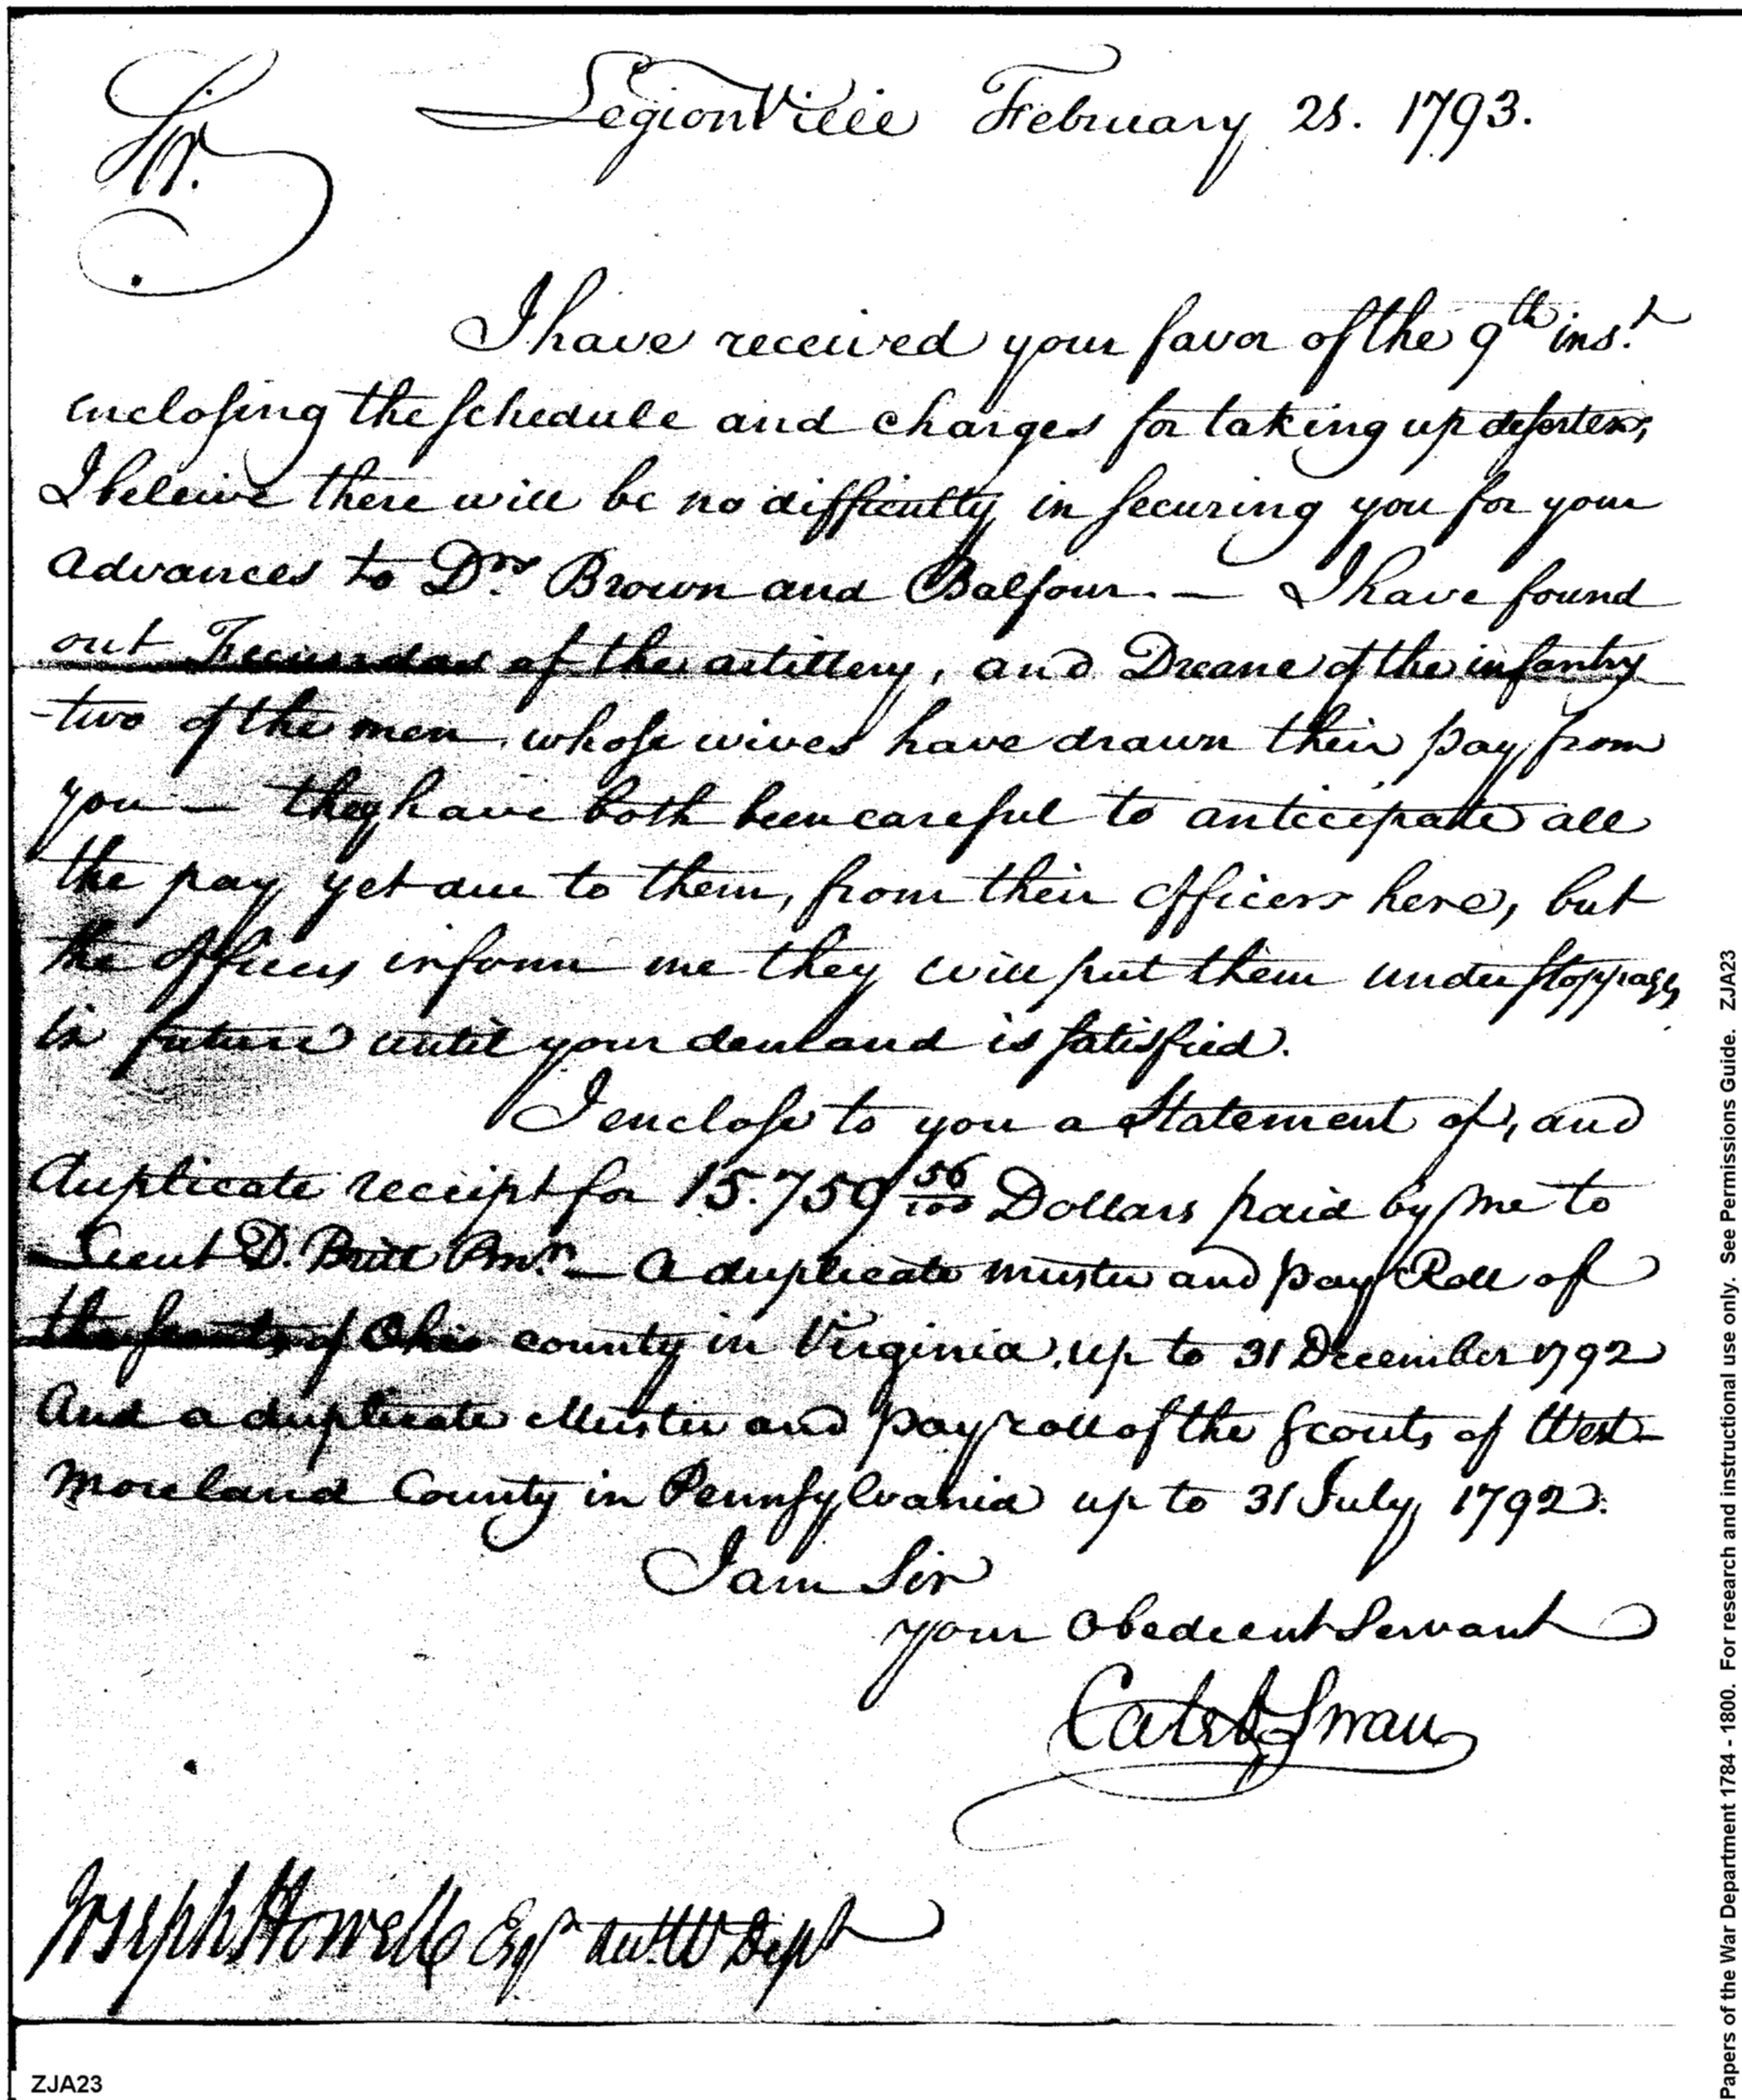 LegionVille February 25. 1793.
Sir.
I have received your favor of the 9th inst.
inclosing the schedule and charges for taking up deserters,
I beleive there will be no difficulty in securing you for your
advances to Drs Brown and Balfour. — I have found
out of the artillery, and Deane of the infantry
two of the men whose wives have drawn their pay from
you — they have both been careful to anticipate all
the pay yet due to them, from their officers here, but
the officers inform me they will put them under stoppages
in future until your demand is satisfied.
I enclose to you a Statement of, and
duplicate receipt for 15.759 56/100 Dollars paid by me to
Lieut D. Britt Pmr. — A duplicate muster and pay Roll of
the scouts of Ohio county in Virginia, up to 31 December 1792
And a duplicate Muster and pay roll of the scouts of West-
moreland County in Pennsylvania up to 31 July 1792.
I am Sir
your Obedient Servant
Caleb Swan
Joseph Howell Esqr Acct. W Dept
Papers of the War Department 1784 - 1800. For research and instructional use only. See Permissions Guide. ZJA23
ZJA23